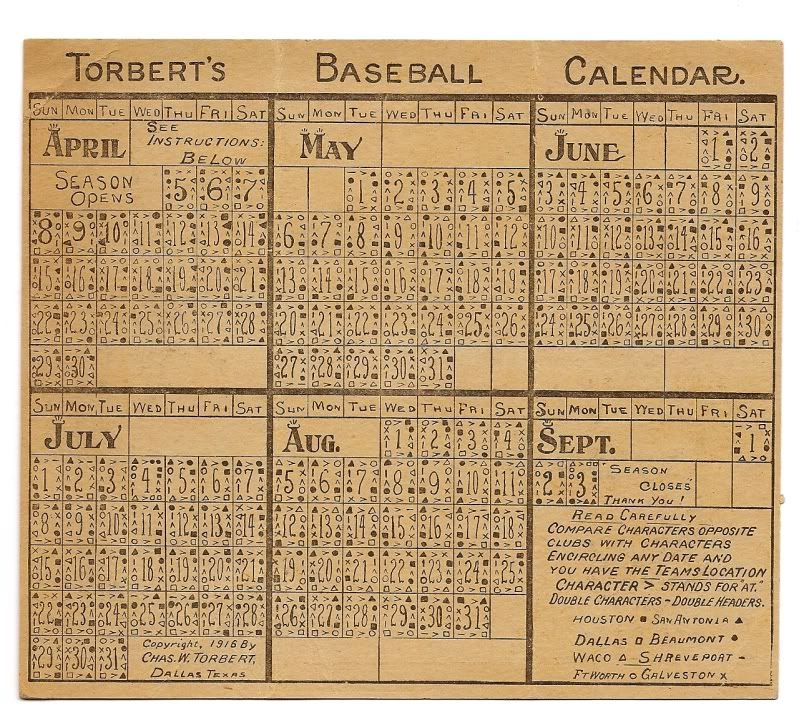 TORBERT'S BASEBALL CALENDAR.
SUN MON TUE WED THU FRI SAT
APRIL
SEE
INSTRUCTIONS:
BELOW
SEASON
OPENS
5 6 7
8 9 10 11 12 13 14
15 16 17 18 19 20 21
22 23 24 25 26 27 28
29 30
SUN MON TUE WED THU FRI SAT
MAY
1 2 3 4 5
6 7 8 9 10 11 12
13 14 15 16 17 18 19
20 21 22 23 24 25 26
27 28 29 30 31
SUN MON TUE WED THU FRI SAT
JUNE 1 2
3 4 5 6 7 8 9
10 11 12 13 14 15 16
17 18 19 20 21 22 23
24 25 26 27 28 29 30
SUN MON TUE WED THU FRI SAT
JULY
1 2 3 4 5 6 7
8 9 10 11 12 13 14
15 16 17 18 19 20 21
22 23 24 25 26 27 28
29 30 31
Copyright, 1916 By
CHAS. W. TORBERT,
DALLAS TEXAS
SUN MON TUE WED THU FRI SAT
AUG. 1 2 3 4
5 6 7 8 9 10 11
12 13 14 15 16 17 18
19 20 21 22 23 24 25
26 27 28 29 30 31
SUN MON TUE WED THU FRI SAT
SEPT. 1
2 3
"SEASON
CLOSES"
THANK YOU!
READ CAREFULLY
COMPARE CHARACTERS OPPOSITE
CLUBS WITH CHARACTERS
ENCIRCLING ANY DATE AND
YOU HAVE THE TEAMS LOCATION
CHARACTER > STANDS FOR "AT."
DOUBLE CHARACTERS - DOUBLE HEADERS.
HOUSTON ■ SAN ANTONIA ▲
DALLAS □ BEAUMONT ●
WACO △ SHREVEPORT –
FT WORTH ○ GALVESTON X